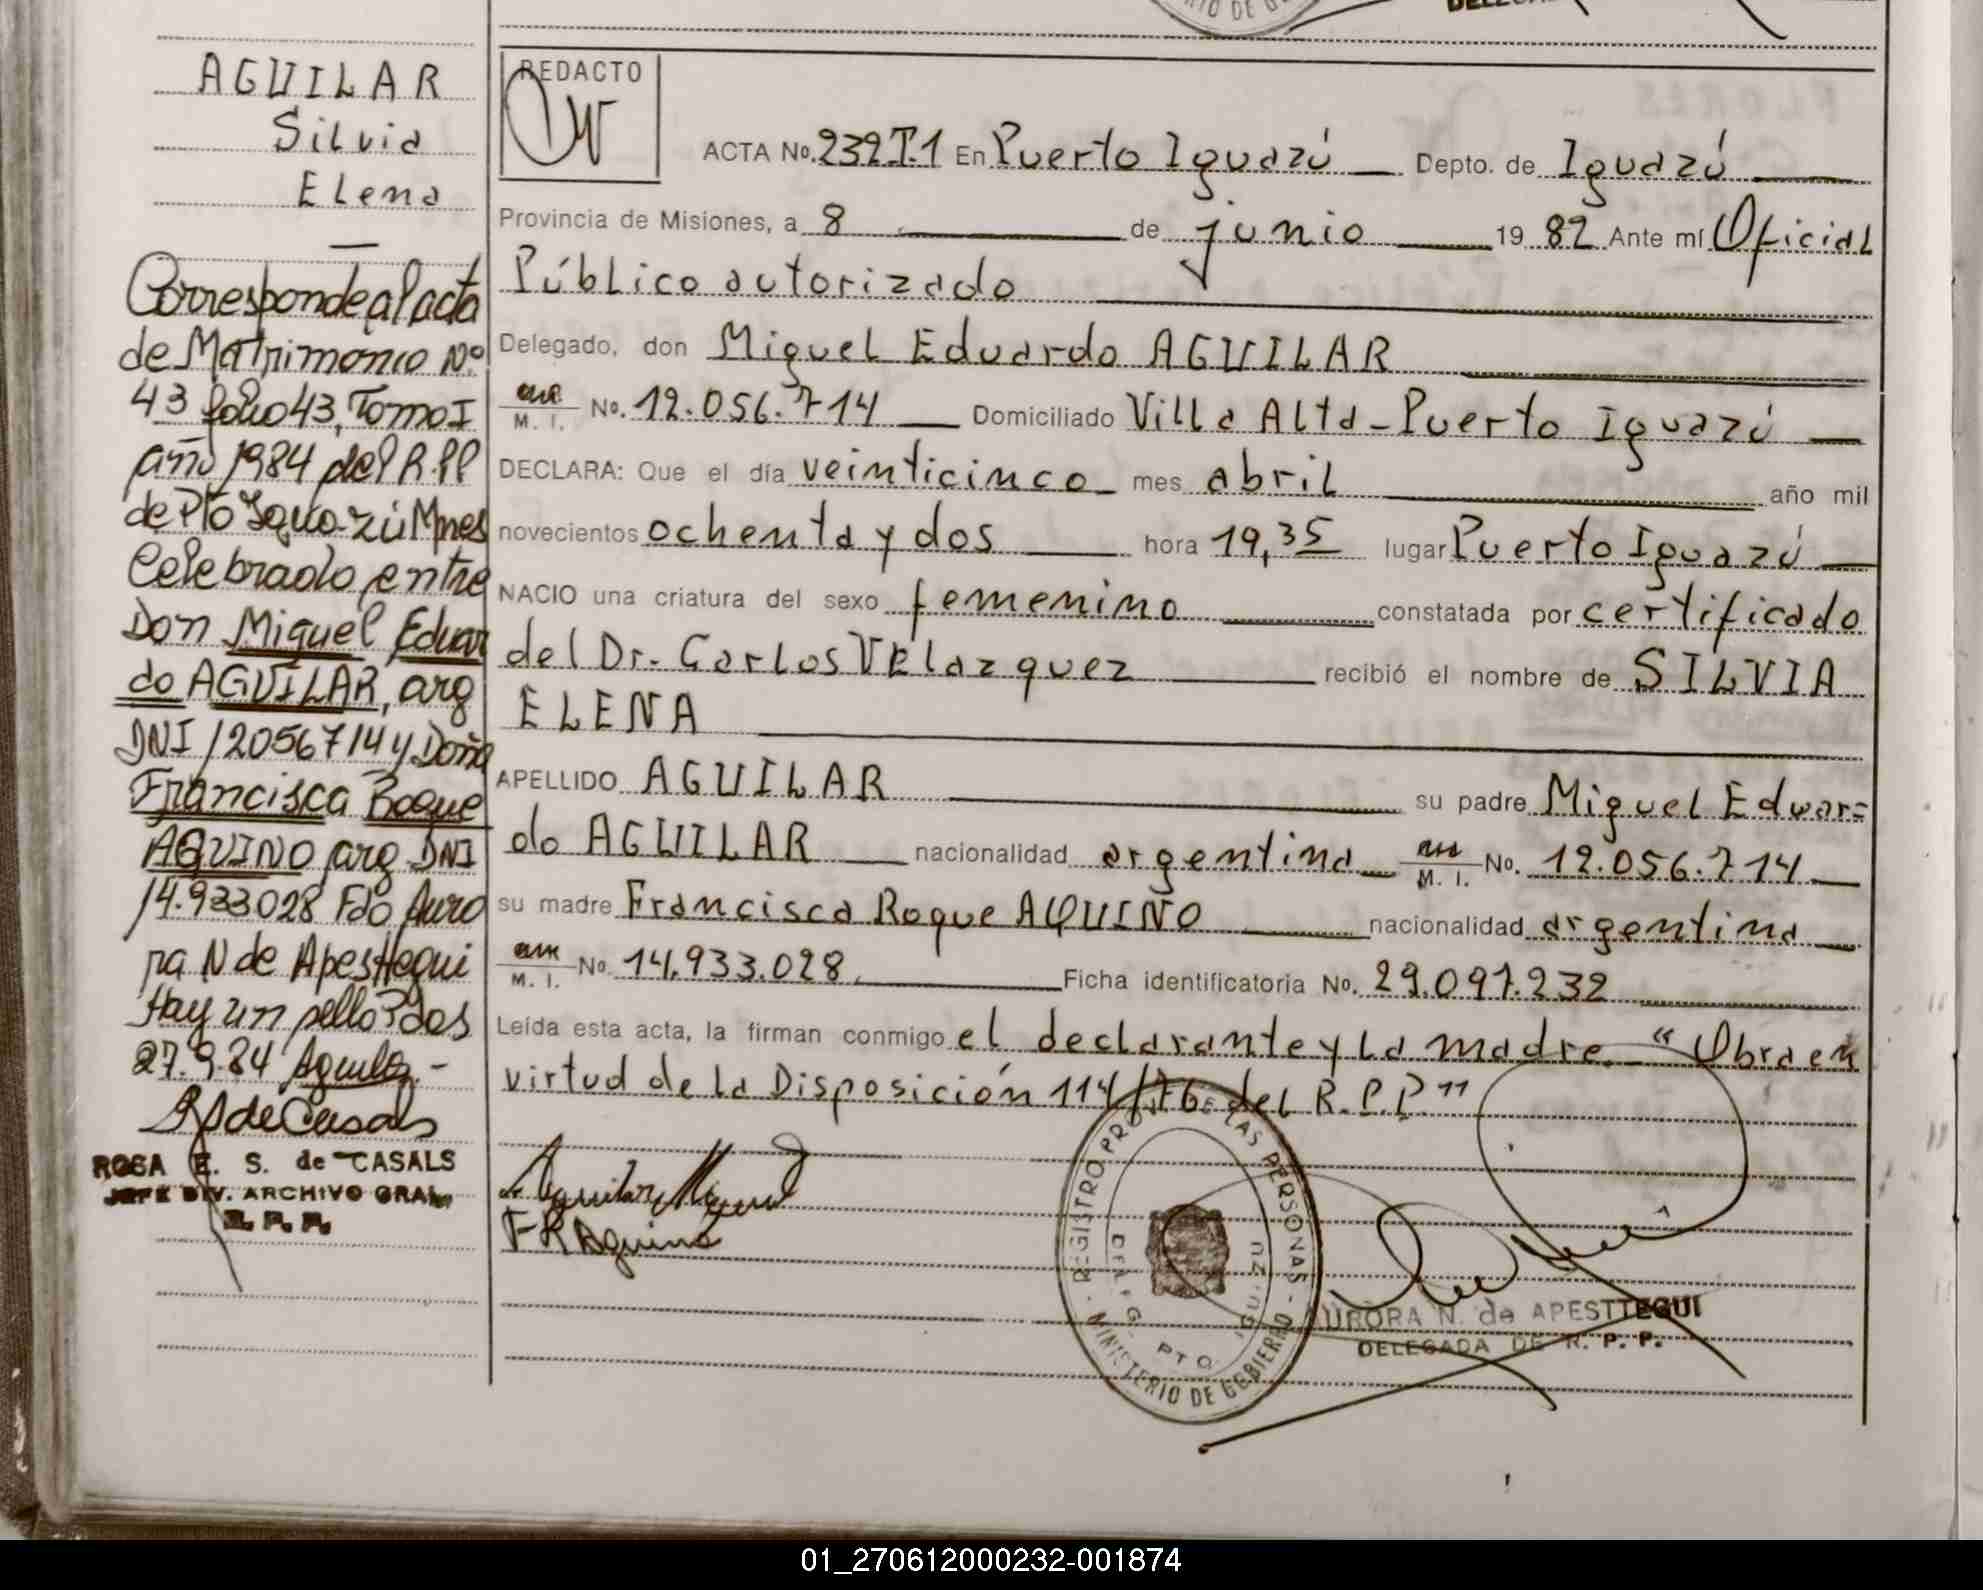 AGUILAR
Silvia
Elena
Corresponde al acta
de Matrimonio Nº
43 folio 43, Tomo I
año 1984 del R.PP
de Pto Iguazú Mnes
Celebrado entre
Don Miguel Eduar
do AGUILAR, arg
DNI 12056714 y Doña
Francisca Roque
AQUINO arg DNI
14.933028 Fdo Auro
ra N de Apesttegui
Hay un sello Pdos
27.9.84
ROSA E. S. de CASALS
JEFE DIV. ARCHIVO GRAL.
R. P. P.
REDACTO
ACTA No. 232 T.1 En Puerto Iguazú Depto. de Iguazú
Provincia de Misiones, a 8 de junio 19 82 Ante mí Oficial
Público autorizado
Delegado, don Miguel Eduardo AGUILAR
M. I. No. 12.056.714 Domiciliado Villa Alta - Puerto Iguazú
DECLARA: Que el día veinticinco mes abril año mil
novecientos ochenta y dos hora 19,35 lugar Puerto Iguazú
NACIO una criatura del sexo femenino constatada por certificado
del Dr. Carlos VElazquez recibió el nombre de SILVIA
ELENA
APELLIDO AGUILAR su padre Miguel Eduar=
do AGUILAR nacionalidad argentina M. I. No. 12.056.714
su madre Francisca Roque AQUINO nacionalidad argentina
M. I. No. 14.933.028 Ficha identificatoria No. 29.097.232
Leída esta acta, la firman conmigo el declarante y la madre. "Obra en
virtud de la Disposición 114/76 del R.P.P"
Aguilar Miguel
F R Aquino
REGISTRO PROV. DE LAS PERSONAS
MINISTERIO DE GOBIERNO
AURORA N. de APESTTEGUI
DELEGADA DE R. P. P.
01_270612000232-001874